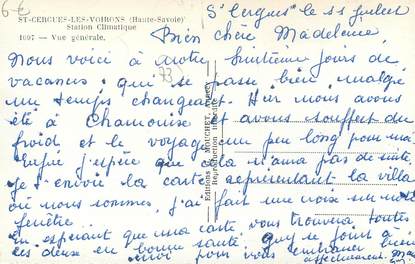 6 €
ST-CERGUES-LES-VOIRONS (Haute-Savoie)
Station Climatique
1097 - Vue générale.
St Cergues le 11 juillet
Bien chère Madeleine,
Nous voici à notre huitième jours de
vacances qui se passe bien malgré
un temps changeant. Hier nous avons
été à Chamonix et avons souffert du
froid et le voyage un peu long pour ma
j'espère que cela n'aura pas de suite,
je t'envoie la carte représentant la villa
où nous sommes, j'ai fait une croix sur notre
fenêtre.
en espérant que ma carte vous trouvera toutes
les deux en bonne santé, Guy se joint à
moi pour vous embrasser bien
affectueusement.
73
Reproduction interdite